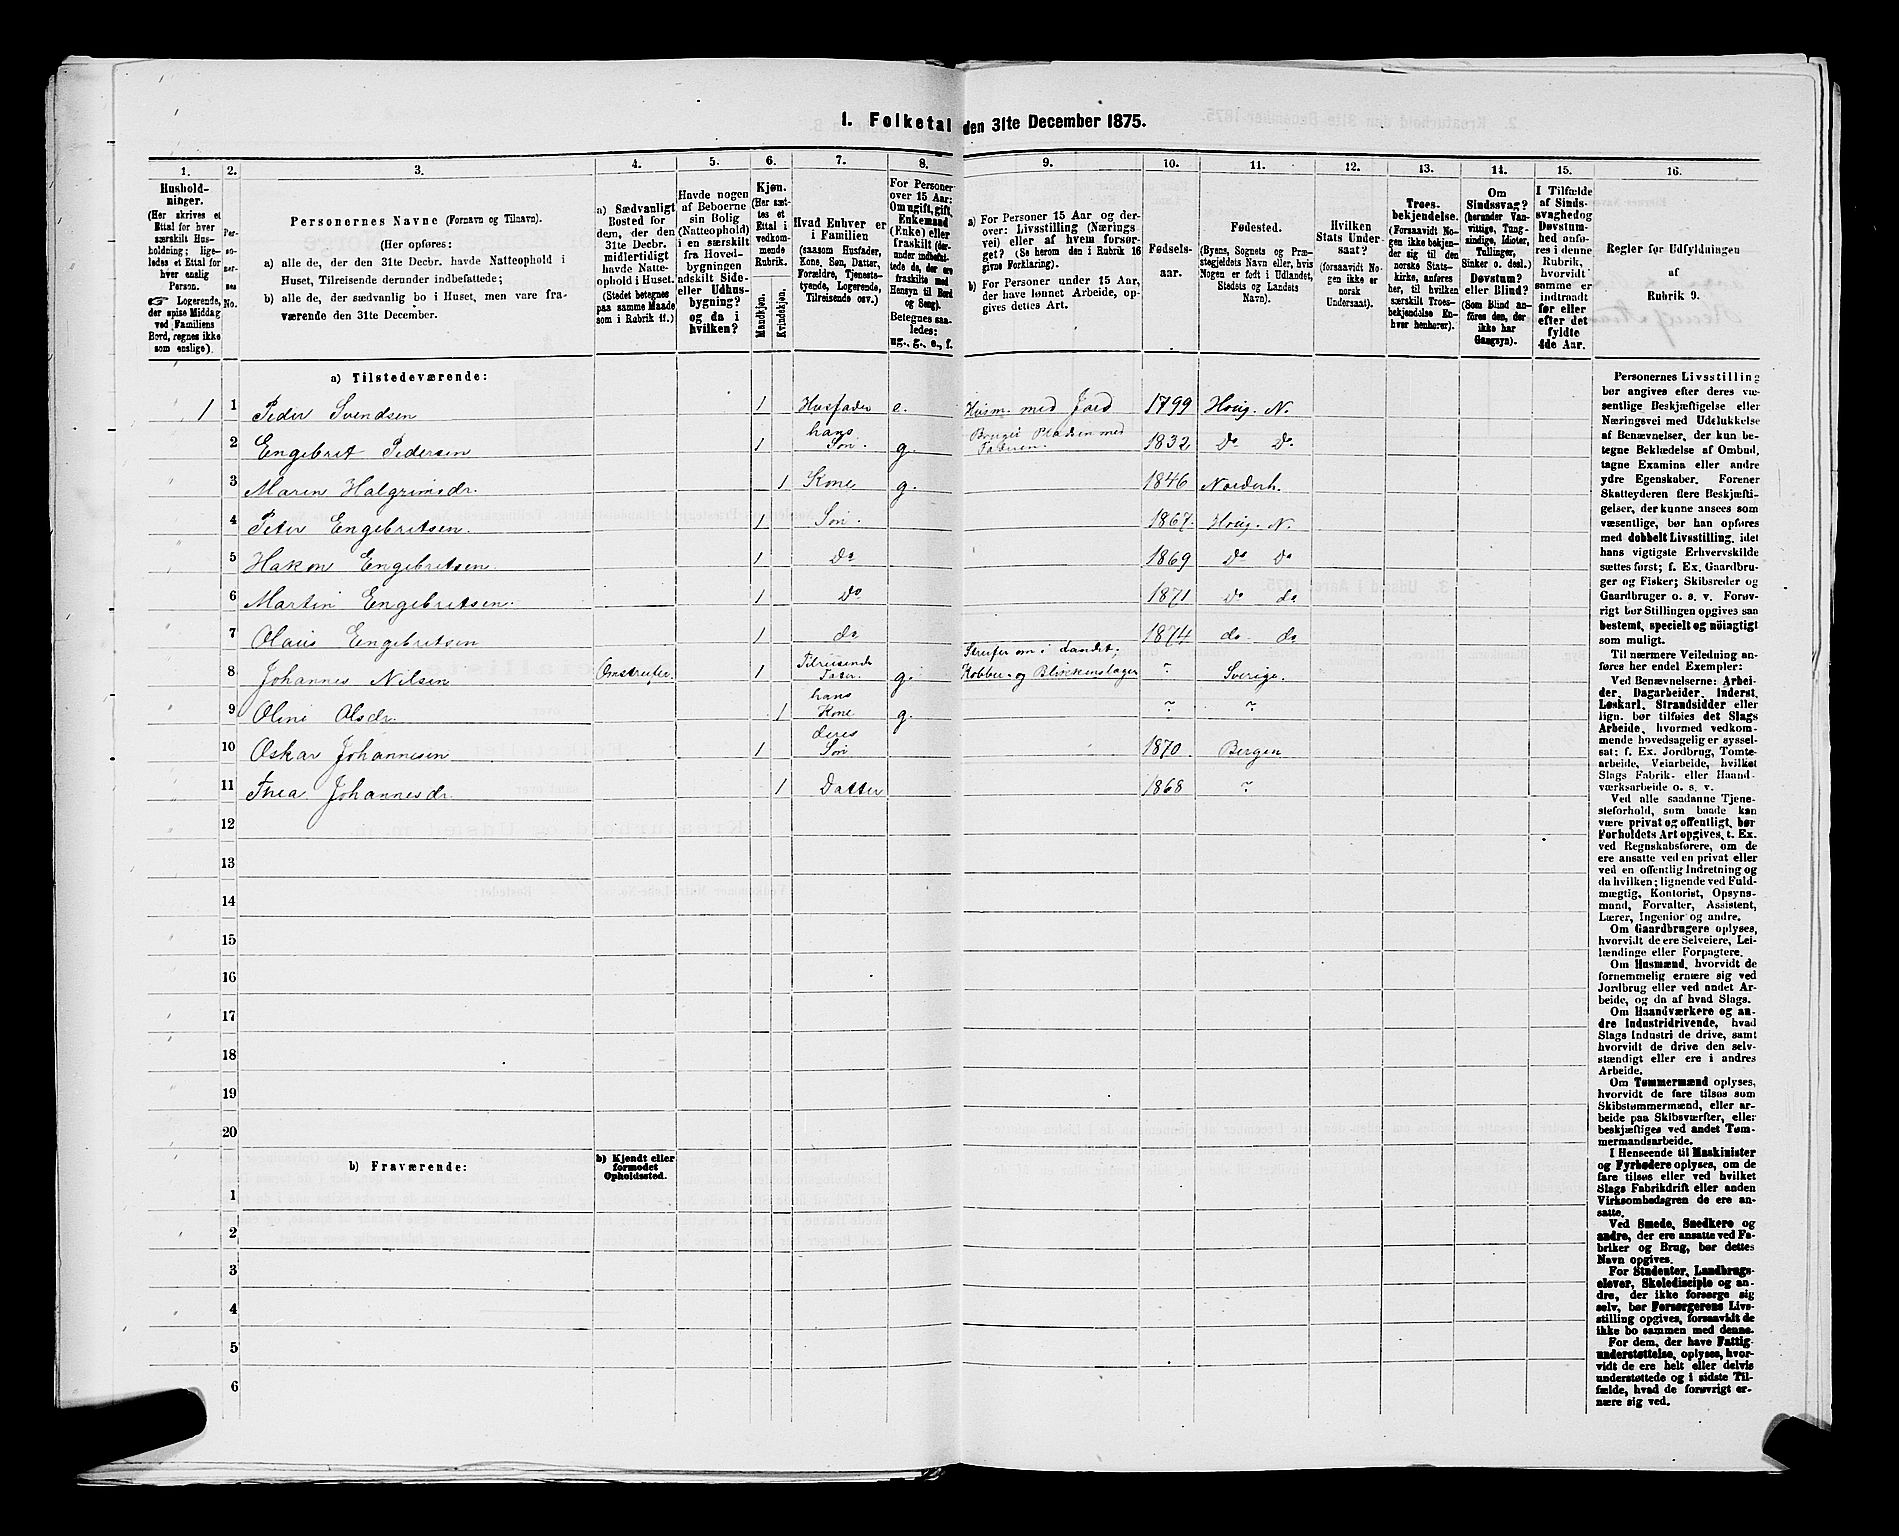 1. Folketal den 31te December 1875.
1.
2.
3.
4.
5.
6.
7.
8.
9.
10.
11.
12.
13.
14.
15.
16.
Hushold-
ninger.
(Her skrives et
Ettal for hver
særskilt Hus-
holdning; lige-
ledes et Ettal for
hver enslig
Person.
☞ Logerende,
der spise Middag
ved Familiens
Bord, regnes ikke
som enslige).
Per-
so-
ner-
nes
No.
Personernes Navne (Fornavn og Tilnavn).
(Her opføres:
a) alle de, der den 31te Decbr. havde Natteophold i
Huset, Tilreisende derunder indbefattede;
b) alle de, der sædvanlig bo i Huset, men vare fra-
værende den 31te December.
a) Sædvanligt
Bosted for
dem, der den
31te Decbr.
midlertidigt
havde Natte-
ophold i Huset.
(Stedet betegnes
paa samme Maade
som i Rubrik 11.)
Havde nogen
af Beboerne
sin Bolig
(Natteophold)
i en særskilt
fra Hoved-
bygningen
adskilt Side-
eller Udhus-
bygning?
og da i
hvilken?
Kjøn.
(Her sæt-
tes et
Ettal i
vedkom-
mende
Rubrik.
Mandkjøn.
Kvindekjøn.
Hvad Enhver er
i Familien
(saasom Husfader,
Kone, Søn, Datter,
Forældre, Tjeneste-
tyende, Logerende,
Tilreisende osv.)
For Personer
over 15 Aar:
Om ugift, gift,
Enkemand
(Enke) eller
fraskilt (der-
under indbefat-
tede de, der ere
fraskilte med
Hensyn til Bord
og Seng).
Betegnes saa-
ledes:
ug., g., e., f.
a) For Personer 15 Aar og der-
over: Livsstilling (Nærings-
vei) eller af hvem forsør-
get? (Se herom den i Rubrik 16
givne Forklaring).
b) For Personer under 15 Aar,
der have lønnet Arbeide, op-
gives dettes Art.
Fødsels-
aar.
Fødested.
(Byens, Sognets og Præ-
stegjeldets Navn eller, hvis
Nogen er født i Udlandet,
Stedets og Landets
Navn).
Hvilken
Stats Under-
saat?
(forsaavidt No-
gen ikke er
norsk
Undersaat).
Troes-
bekjendelse.
(Forsaavidt No-
gen ikke bekjen-
der sig til den
norske Stats-
kirke, anføres
her, til hvilken
særskilt Troes-
bekjendelse En-
hver henhører).
Om
Sindssvag?
(herunder Van-
vittige, Tung-
sindige, Idioter,
Tullinger,
Sinker o. desl.)
Døvstum?
eller Blind?
(Som Blind an-
føres den, der
ikke har
Gangsyn).
I Tilfælde
af Sinds-
svaghed
og Døvstum-
hed anfø-
res i denne
Rubrik,
hvorvidt
samme er
indtraadt
før eller
efter det
fyldte
4de Aar.
Regler før Udfyldningen
af
Rubrik 9.
a) Tilstedeværende:
1 1 Peder Svendsen 1 Husfader e. Husm. med Jord 1799 Houg. N.
2 Engebret Pedersen 1 hans Søn. g. Bruger Pladsen med Faderen. 1832 Do Do
3 Maren Halgrimsdr. 1 Kone g. 1846 Norderh.
4 Peter Engebretsen. 1 Søn. 1867. Houg. N.
5 Hakon Engebretsen. 1 Do 1869 Do Do
6 Martin Engebretsen. 1 Do 1871 Do do
7 Olaus Engebretsen 1 do 1874 do do
8 Johannes Nilsen Omstreifer. 1 Tilreisende Fader. g. Streifer om i Landet; Kobber- og Blikkenslager ? Sverige.
9 Oline Olsdr. 1 hans Kone g. ? ?
10 Oskar Johannesen 1 deres Søn 1870. Bergen
11 Thea Johannesdr. 1 Datter 1868 ?
12
13
14
15
16
17
18
19
20
b) Fraværende:
b) Kjendt eller
formodet
Opholdssted.
1
2
3
4
5
6
Personernes Livsstilling
bør angives efter deres væ-
sentlige Beskjæftigelse eller
Næringsvei med Udelukkelse
af Benævnelser, der kun be-
tegne Beklædelse af Ombud,
tagne Examina eller andre
ydre Egenskaber. Forener
Skatteyderen flere Beskjæfti-
gelser, der kunne ansees som
væsentlige, bør han opføres
med dobbelt Livsstilling, idet
hans vigtigste Erhvervskilde
sættes først; f. Ex. Gaardbru-
ger og Fisker; Skibsreder og
Gaardbruger o. s. v. Forøv-
rigt bør Stillingen opgives saa
bestemt, specielt og nøiagtigt
som muligt.
Til nærmere Veiledning an-
føres her endel Exempler:
Ved Benævnelserne: Arbei-
der, Dagarbeider, Inderst,
Løskarl, Strandsidder eller
lign. bør tilføies det Slags
Arbeide, hvormed vedkom-
mende hovedsagelig er syssel-
sat: f. Ex. Jordbrug, Tomte-
arbeide, Veiarbeide, hvilket
Slags Fabrik- eller Haand-
værksarbeide o. s. v.
Ved alle saadanne Tjene-
steforhold, som baade kan
være privat og offentligt, bør
Forholdets Art opgives, t. Ex.
ved Regnskabsførere, om de
ere ansatte ved en privat eller
ved en offentlig Indretning og
da hvilken; lignende ved Fuld-
mægtig, Kontorist, Opsyns-
mand, Forvalter, Assistent,
Lærer, Ingeniør og andre.
Om Gaardbrugere oplyses,
hvorvidt de ere Selveiere, Lei-
lændinge eller Forpagtere.
Om Husmænd, hvorvidt de
fornemmelig ernære sig ved
Jordbrug eller ved andet Ar-
beide, og da af hvad Slags.
Om Haandværkere og an-
dre Industridrivende, hvad
Slags Industri de drive, samt
hvorvidt de drive den selv-
stændigt eller ere i andres
Arbeide.
Om Tømmermænd oplyses,
hvorvidt de fare tilsøs som
Skibstømmermænd, eller ar-
beide paa Skibsværfter, eller
beskjæftiges ved andet Tøm-
mermandsarbeide.
I Henseende til Maskinister
og Fyrbødere oplyses, om de
fare tilsøs eller ved hvilket
Slags Fabrikdrift eller anden
Virksomhedsgren de ere an-
satte.
Ved Smede, Snedkere og
andre, der ere ansatte ved Fa-
briker og Brug, bør dettes
Navn opgives.
For Studenter, Landbrugs-
elever, Skoledisciple og an-
dre, der ikke forsørge sig
selv, bør Forsørgerens Livs-
stilling opgives, forsaavidt de
ikke bo sammen med denne.
For dem, der have Fattig-
understøttelse, oplyses, hvor-
vidt de ere helt eller delvis
understøttede og i sidste Til-
fælde, hvad de forøvrigt er-
nære sig ved.